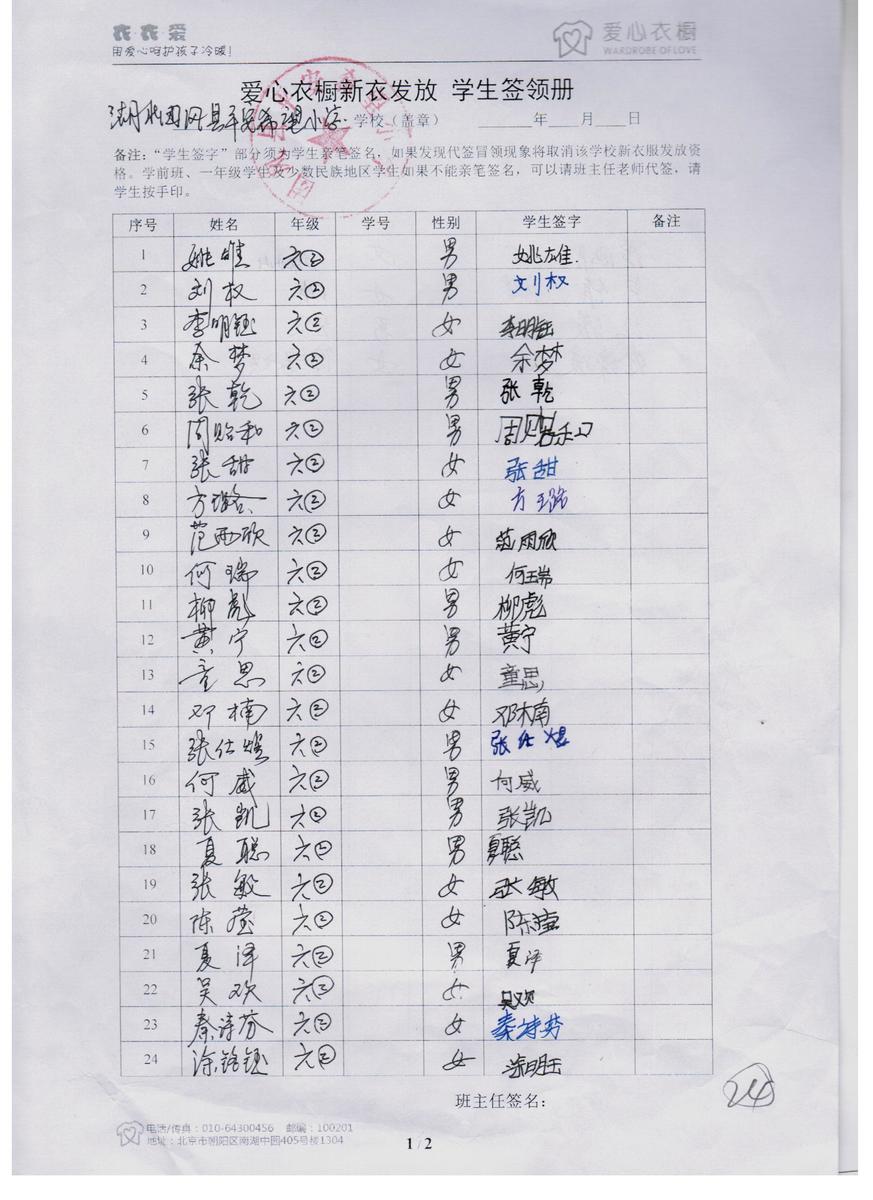 衣·衣·爱
用爱心呵护孩子冷暖！
爱心衣橱
WARDROBE OF LOVE
爱心衣橱新衣发放 学生签领册
希望小学 学校（盖章） ______年____月____日
备注：“学生签字”部分须为学生亲笔签名，如果发现代签冒领现象将取消该学校新衣服发放资
格。学前班、一年级学生及少数民族地区学生如果不能亲笔签名，可以请班主任老师代签，请
学生按手印。
序号 姓名 年级 学号 性别 学生签字 备注
1 姚雄 六② 男 姚雄.
2 刘权 六② 男 刘权
3 李明钰 六② 女 李明钰
4 余梦 六② 女 余梦
5 张乾 六② 男 张乾
6 周贻和 六② 男 周贻和
7 张甜 六② 女 张甜
8 方璐 六② 女 方璐
9 范雨欣 六② 女 范雨欣
10 何瑞 六② 女 何瑞
11 柳彪 六② 男 柳彪
12 黄宁 六② 男 黄宁
13 童思 六② 女 童思
14 邓楠 六② 女 邓楠
15 张仕煜 六② 男 张仕煜
16 何威 六② 男 何威
17 张凯 六② 男 张凯
18 夏聪 六② 男 夏聪
19 张敏 六② 女 张敏
20 陈莹 六② 女 陈
21 夏泽 六② 男 夏泽
22 吴欢 六② 女 吴欢
23 秦诗芬 六② 女 秦诗芬
24 涂铭钰 六② 女 涂明玉
班主任签名：
24
电话/传真：010-64300456 邮编：100201
地址：北京市朝阳区南湖中园405号楼1304
1 / 2